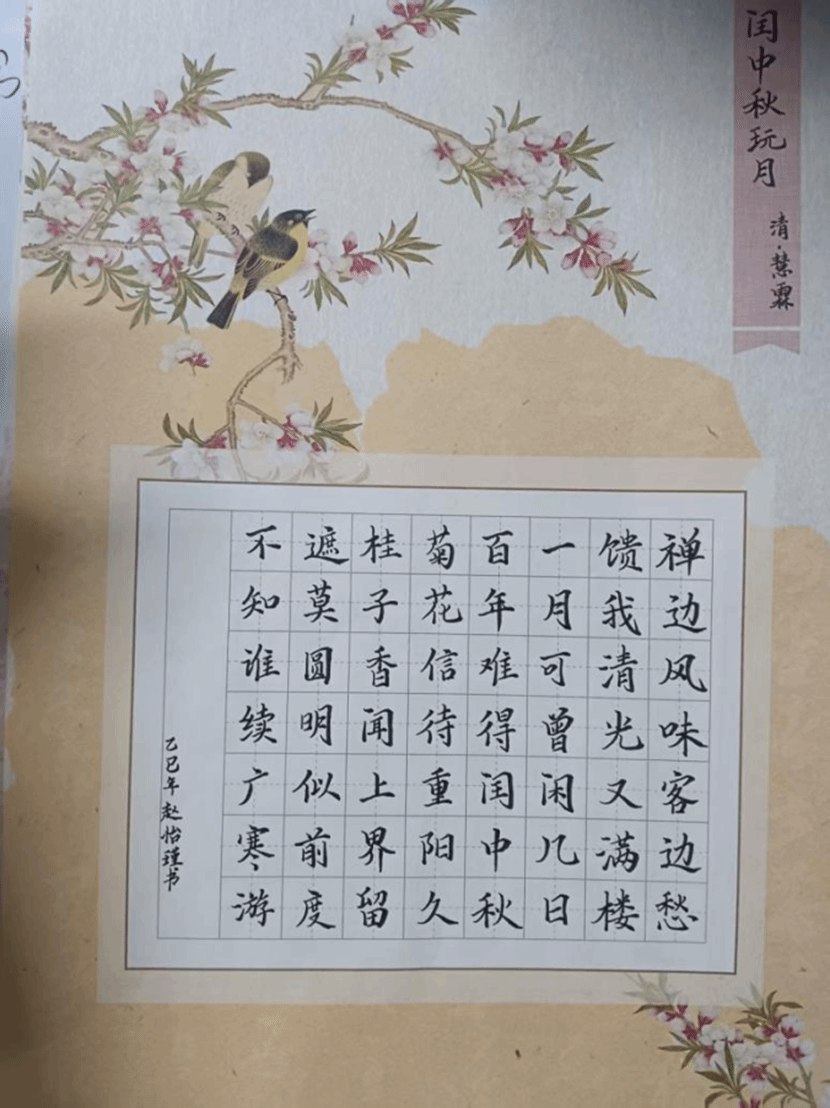 闰中秋玩月
清·慧霖
禅边风味客边愁
馈我清光又满楼
一月可曾闲几日
百年难得闰中秋
菊花信待重阳久
桂子香闻上界留
遮莫圆明似前度
不知谁续广寒游
乙巳年赵怡瑾书